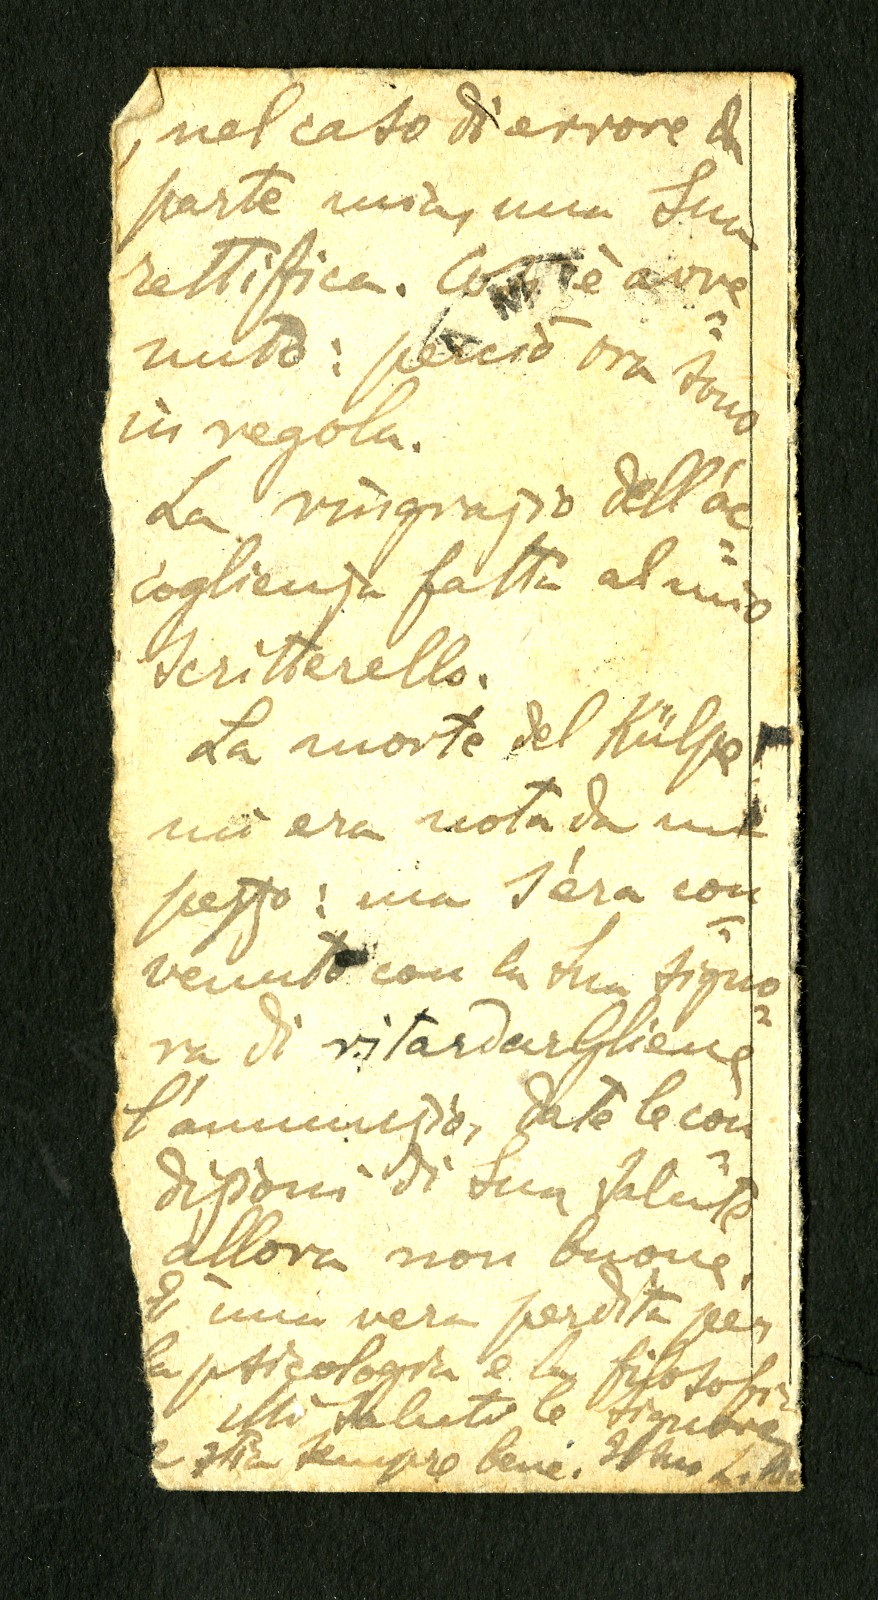 , nel caso di errore da
parte mia, una Sua
rettifica. Così è avve=
nuto: perciò ora sono
in regola.
La ringrazio dell'ac=
coglienza fatta al mio
scritterello.
La morte del Külpe
mi era nota da un
pezzo: ma s'era con=
venuto con la Sua signo=
ra di ritardargliene
l'annunzio, date le con=
dizioni di Sua salute
allora non buone.
È una vera perdita per
la psicologia e la filosofia
Mi saluti le signore
e stia sempre bene. Il suo